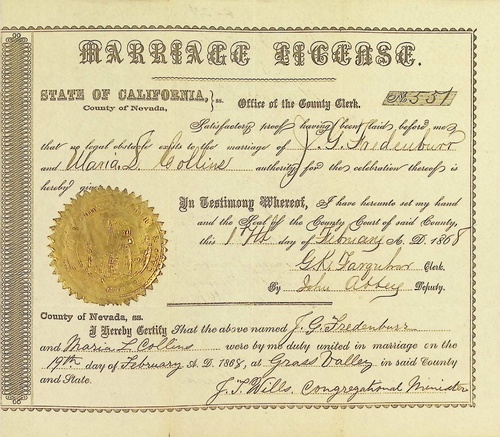 MARRIAGE LICENSE.
STATE OF CALIFORNIA, } ss.
County of Nevada,
Office of the County Clerk.
No 551
Satisfactory proof having been laid before me
that no legal obstacle exists to the marriage of J. G. Fredenburr
and Maria L. Collins authority for the celebration thereof is
hereby given
In Testimony Whereof, I have hereunto set my hand
and the Seal of the County Court of said County,
this 17th day of February A. D. 1868
G. K. Farquhar Clerk.
By John Abbey Deputy.
County of Nevada, ss.
I Hereby Certify That the above named J. G. Fredenburr
and Maria L. Collins were by me duly united in marriage on the
19th day of February A. D. 1868, at Grass Valley in said County
and State.
J. T. Wills, Congregational Minister